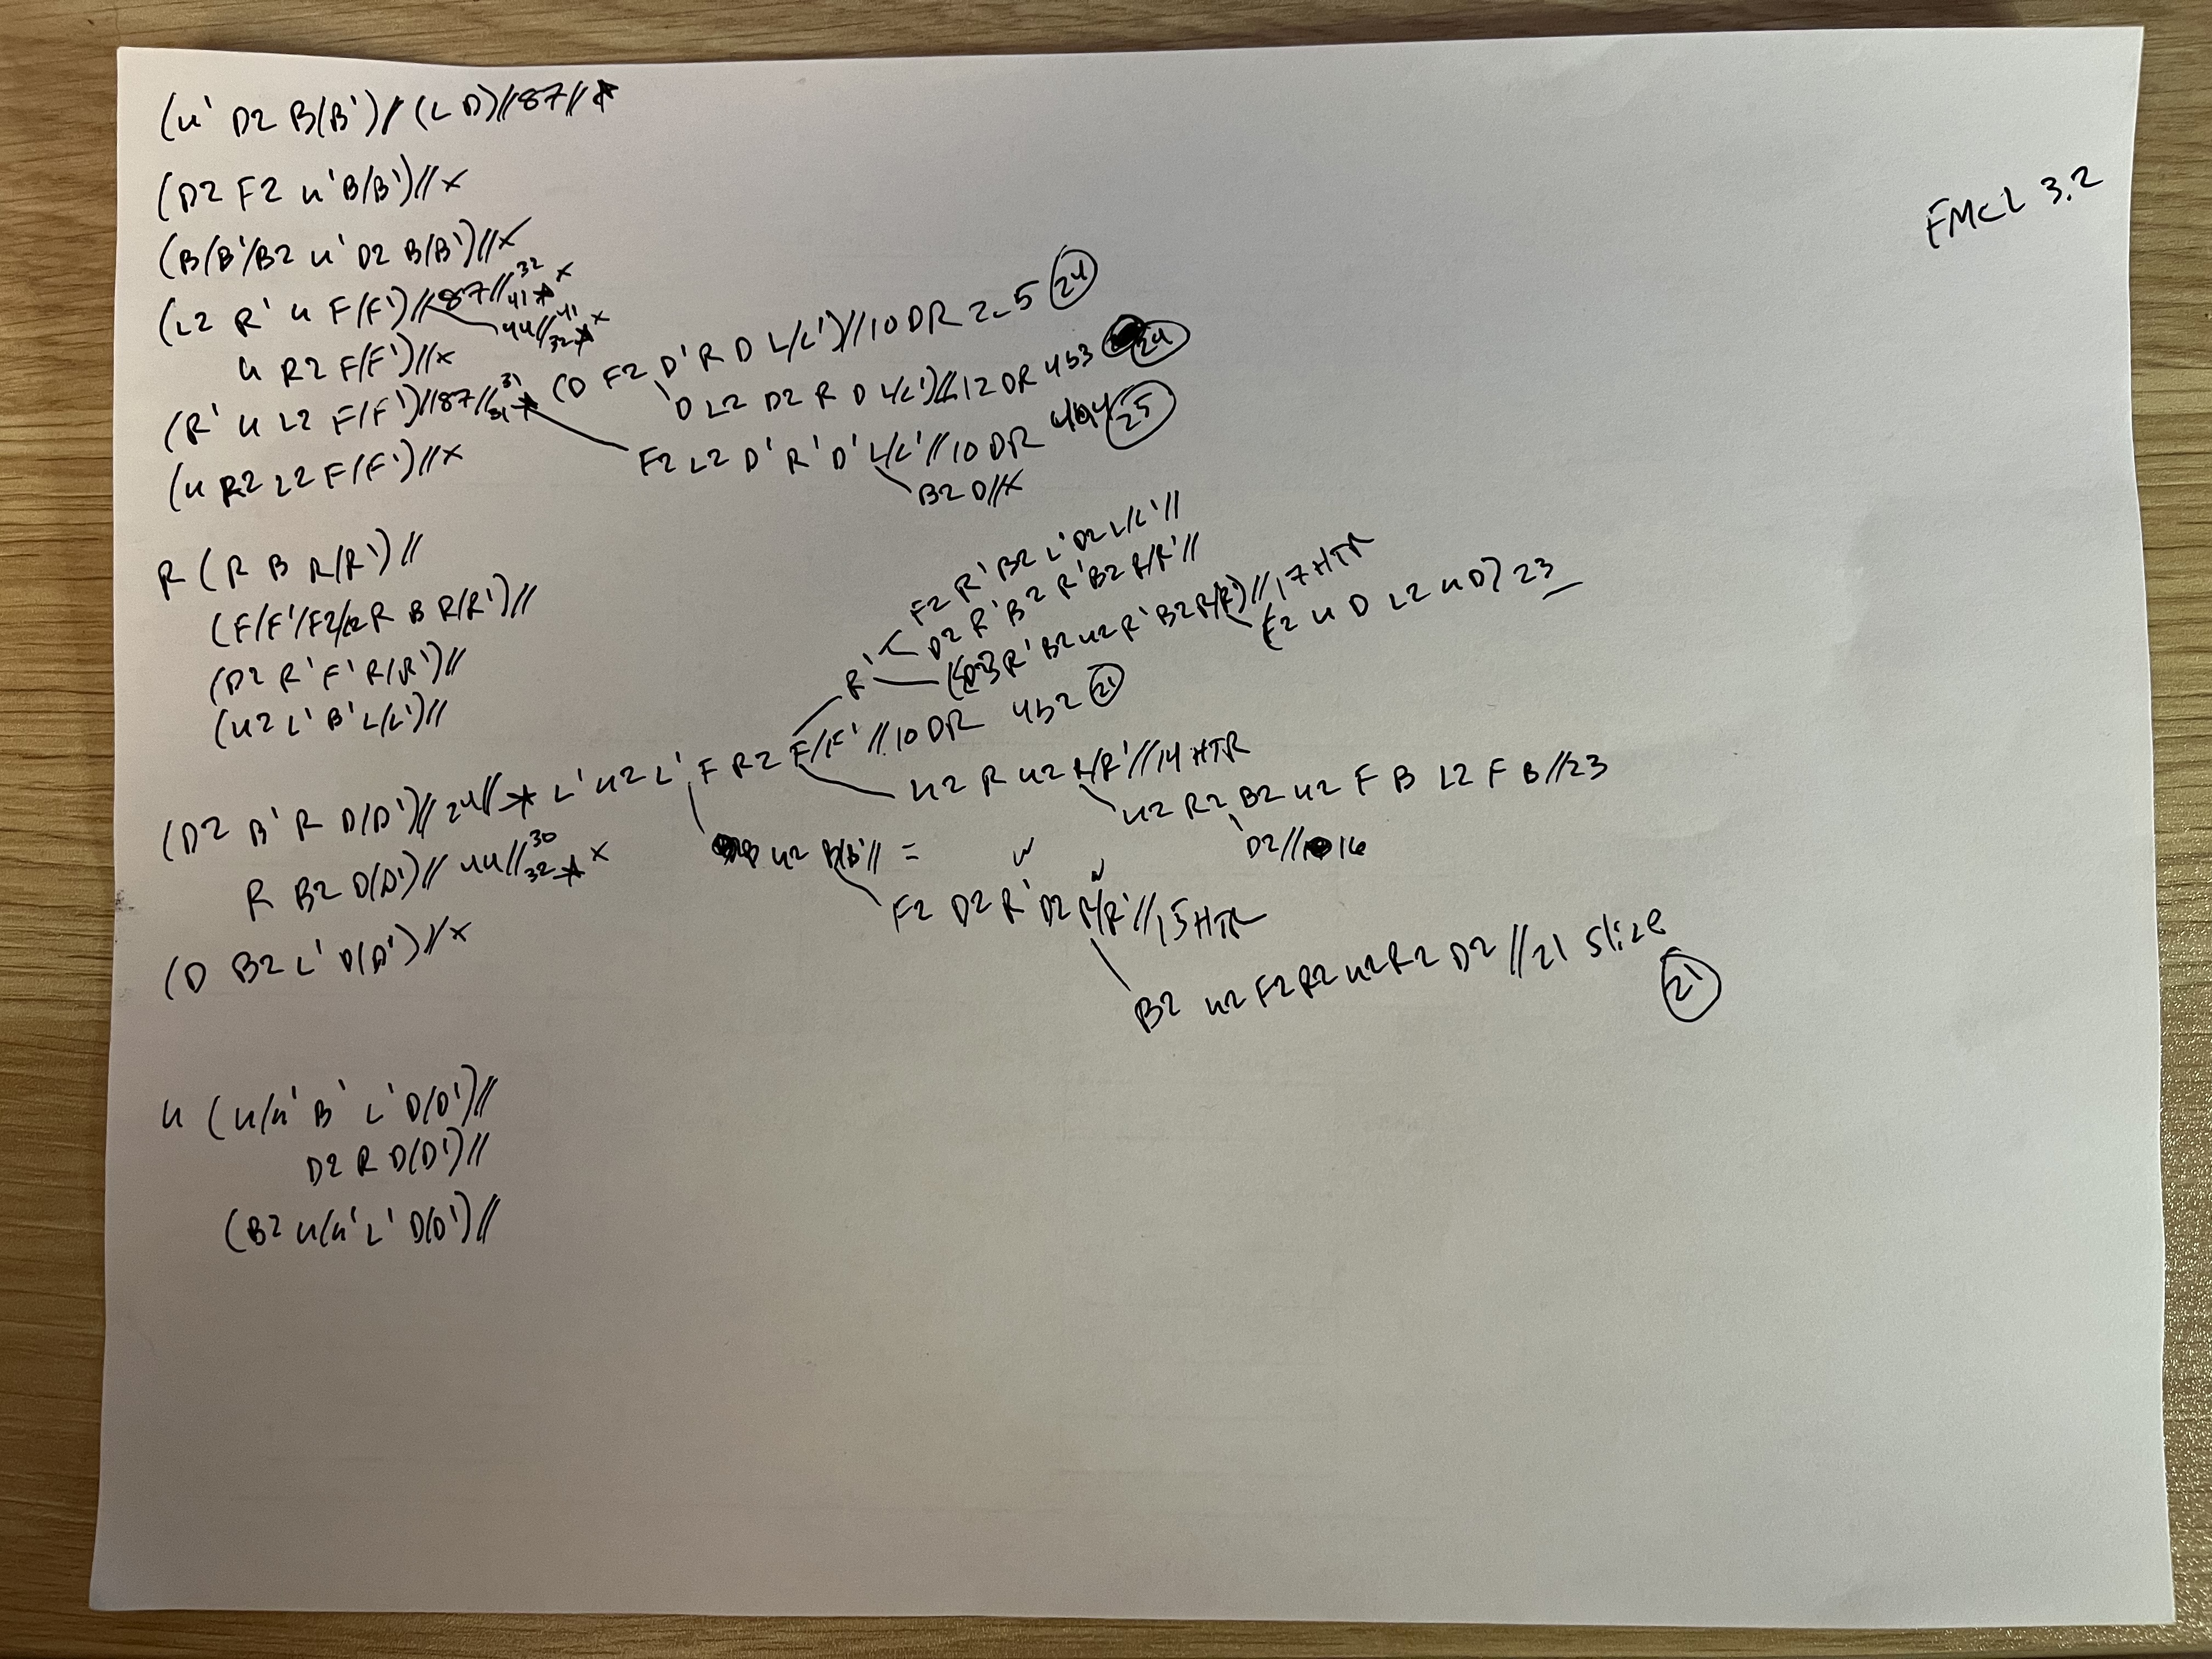 FMCL 3.2
(u' D2 B(B')/(L D)//87//★
(D2 F2 u' B/B')//x
(B/B'/B2 u' D2 B/B')//x
(L2 R' u F/F')//87//32 41★ x
44//41 32★ x
u R2 F/F')//x
(R' u L2 F/F')//87//31 31★ (D F2 D' R D L/L')//10 DR 2-5 (24)
D L2 D2 R D L/L')//12 DR 4b3 (24)
F2 L2 D' R' D' L/L'//10 DR 4a4 (25)
B2 D//x
(u R2 L2 F/F')//x
R (R B R/R')//
(F/F'/F2/ R B R/R')//
(D2 R' F' R/R')//
(u2 L' B' L/L')//
(D2 B' R D/D')//24//★ L' u2 L' F R2 F/F'//10 DR 4b2 (21)
R'
F2 R' B2 L' D2 L/L'//
D2 R' B2 R' B2 R/R'//
R' B2 u2 R' B2 R/R')//17 HTR
(F2 u D L2 u D) 23
u2 R u2 R/R'//14 HTR
u2 R2 B2 u2 F B L2 F B//23
D2//16
B u2 B/B'// =
F2 D2 R' D2 R/R'//15 HTR
B2 u2 F2 R2 u2 R2 D2 //21 slice
(21)
R B2 D(D')//44//30 32★ x
(D B2 L' D(D')//x
u (u/u' B' L' D(D')//
D2 R D(D')//
(B2 u/u' L' D(D')//